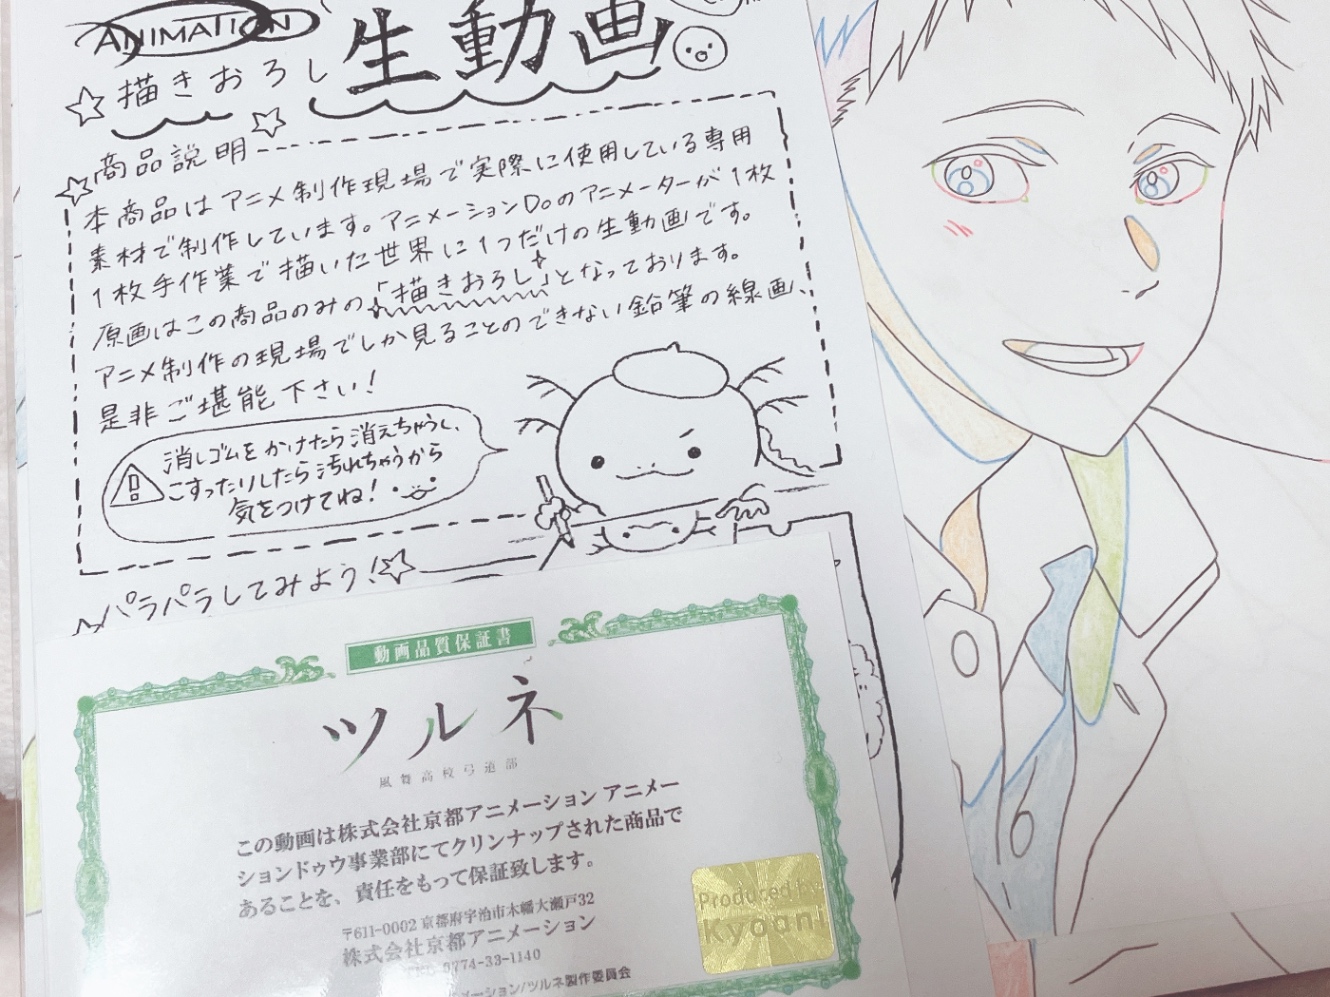 ANIMATION
描きおろし生動画
商品説明
本商品はアニメ制作現場で実際に使用している専用
素材で制作しています。アニメーションDoのアニメーターが1枚
1枚手作業で描いた世界に1つだけの生動画です。
原画はこの商品のみの「描きおろし」となっております。
アニメ制作の現場でしか見ることのできない鉛筆の線画、
是非ご堪能下さい!
消しゴムをかけたら消えちゃうし、
こすったりしたら汚れちゃうから
気をつけてね!
パラパラしてみよう!
動画品質保証書
ツルネ
風舞高校弓道部
この動画は株式会社京都アニメーション アニメー
ションドゥウ事業部にてクリンナップされた商品で
あることを、責任をもって保証致します。
〒611-0002 京都府宇治市木幡大瀬戸32
株式会社京都アニメーション
0774-33-1140
アニメーション/ツルネ製作委員会
Produced by
Kyoani